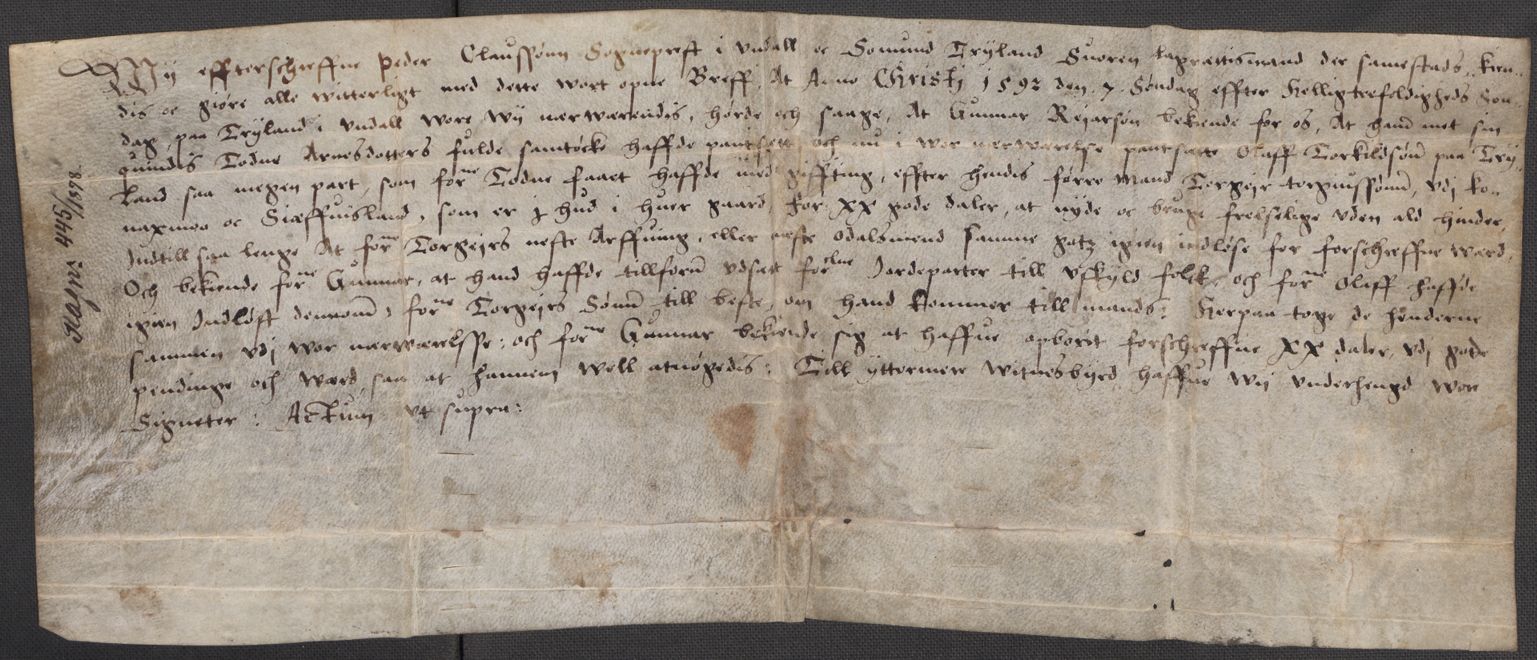 Wij effterschreffne Peder Claussønn Sogneprest i Undall oc Somund Tryland Suoren lagrættismand der samestads, kien-
dis oc giøre alle witterligt med dette wort opne Breff, At Anno Christi 1592 den 7 Søndag effter hellig trefoldigheds Søn-
dag paa Tryland i Undall wore wij nærwærendis, hørde och saage, At Gunnar Reiarsøn bekiende for os, At hand met sin
quindis Todne Arnesdotters fulde samtöcke haffde pantsett och nu i wor nerwærelse pantsatte Olaff Torkildsønn paa Try-
land saa megen part, som forne Todne faaet haffde med giffting, effter hendis förre mand Torgeir torgiussønn, vdj Ko-
naxmoo oc Siæffuisland, som er j hud i huer gaard, for XX gode daler, at nyde oc bruge frelselige uden ald hinder,
Indtill saa lenge At forne Torgeirs neste Arffuing, eller neste odalsmend samme gotz igien indløse for forschreffne wærd,
Och bekiende forne Gunnar, at hand haffde tillforn vdsatt forne Jordeparter till vskyld folck, och forne Olaff haffde
igien Indløst dennom, forne Torgeirs Sønn till beste, om hand kommer till mands: Herpaa toge de henderne
sammen vdj wor nærwærelsse: och forne Gunnar bekiende sig at haffue opborit forschreffne XX daler, vdj gode
pendinge och wærd saa at hannem well atnögedis: Till yttermere witnesbyrd haffue wij underhengd wor
Signeter: Actum ut supra:
445/1898